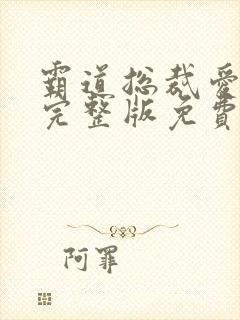 霸道总裁爱
完整版免費
阿罪